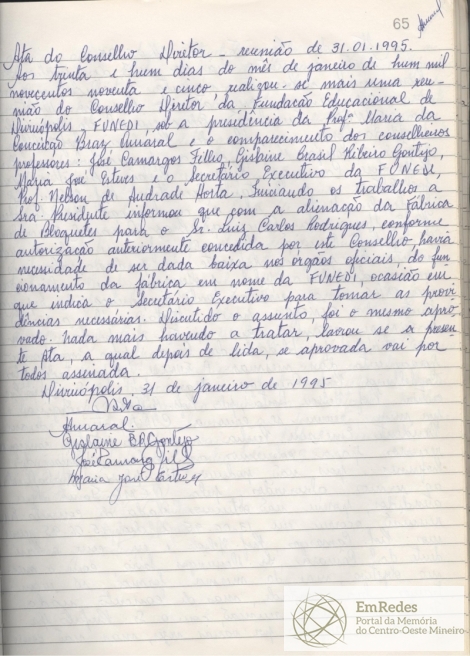 65
Amaral
Ata do Conselho Diretor - reunião de 31.01.1995.
Aos trinta e hum dias do mês de janeiro de hum mil
novecentos noventa e cinco, realizou-se mais uma reu-
nião do Conselho Diretor da Fundação Educacional de
Divinópolis, FUNEDI, sob a presidência da Profª Maria da
Conceição Braz Amaral e o comparecimento dos conselheiros
professores: José Camargos Filho, Gislaine Brasil Ribeiro Gontijo,
Maria José Esteves e o Secretário Executivo da FUNEDI,
Prof. Nelson de Andrade Horta. Iniciando os trabalhos a
Sra. Presidente informou que com a alienação da Fábrica
de Bloquetes para o Sr. Luiz Carlos Rodrigues, conforme
autorização anteriormente concedida por este Conselho, havia
necessidade de ser dada baixa nos órgãos oficiais, do fun
cionamento da fábrica em nome da FUNEDI, ocasião em
que indica o Secretário Executivo para tomar as provi
dências necessárias. Discutido o assunto, foi o mesmo apro
vado. Nada mais havendo a tratar, lavrou se a presen
te Ata, a qual depois de lida, se aprovada vai por
todos assinada.
Divinópolis, 31 de janeiro de 1995
Amaral.
Gislaine B R Gontijo
José Camargos Filho
Maria José Esteves
EmRedes
Portal da Memória
do Centro-Oeste Mineiro